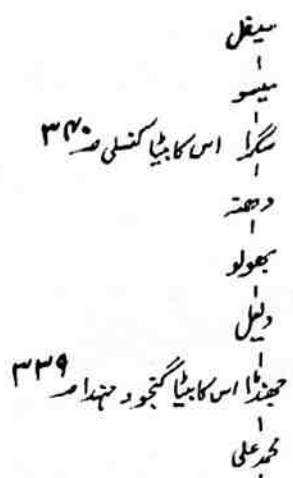 سیفل
میسو
سگرا اس کا بیٹا کنسلی صـ ۳۴۰
دھتہ
بھولو
دلیل
جھنڈا اس کا بیٹا گنجو د جندا صـ ۳۳۹
محمد علی